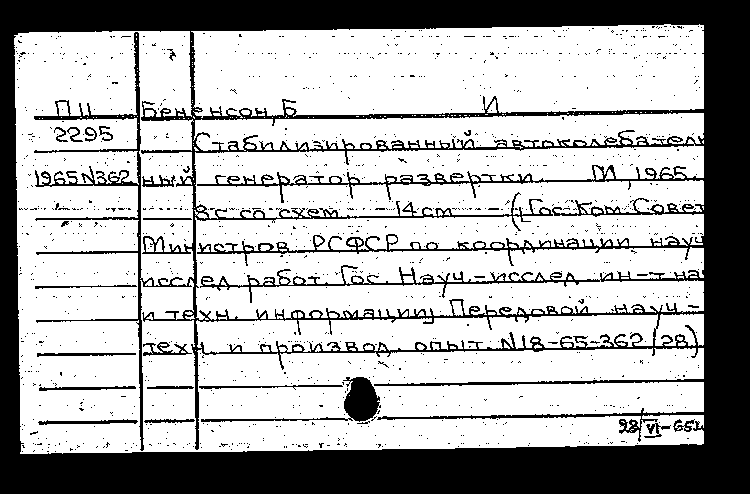 П11 Бененсон, Б И
2295 Стабилизированный автоколебатель
1965 N362 ный генератор развертки. М, 1965.
8с со схем. - 14 см - (Гос. Ком. Совет
Министров РСФСР по координации науч
исслед работ. Гос. Науч.-исслед ин-т на
и техн. информации) Передовой науч.-
техн. и производ. опыт. N18-65-362/28)
28/VI-65